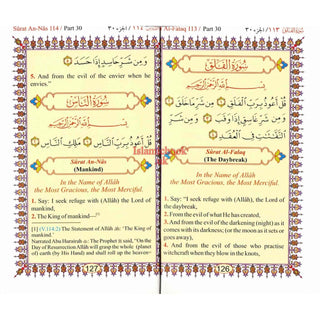 Sûrat An-Nâs 114 / Part 30
الجزء ٣٠ / ١١٤
وَمِن شَرِّ حَاسِدٍ إِذَا حَسَدَ
5. And from the evil of the envier when he
envies."
سُورَةُ النَّاسِ
بِسْمِ اللَّهِ الرَّحْمَٰنِ الرَّحِيمِ
قُلْ أَعُوذُ بِرَبِّ النَّاسِ مَلِكِ النَّاسِ
Sûrat An-Nâs
(Mankind)
In the Name of Allâh
the Most Gracious, the Most Merciful.
1. Say: "I seek refuge with (Allâh), the Lord of
mankind,
2. The King of mankind—[1]
[1] (V.114:2) The Statement of Allâh: "The King of
mankind."
Narrated Abu Hurairah: The Prophet said, "On the
Day of Resurrection Allâh will grasp the whole (planet
of) earth (by His Hand) and shall roll up the heaven-
127
Al-Falaq 113 / Part 30
١١٣ / الجزء ٣٠
سُورَةُ الْفَلَقِ
بِسْمِ اللَّهِ الرَّحْمَٰنِ الرَّحِيمِ
قُلْ أَعُوذُ بِرَبِّ الْفَلَقِ مِن شَرِّ مَا خَلَقَ
وَمِن شَرِّ غَاسِقٍ إِذَا وَقَبَ وَمِن شَرِّ
النَّفَّاثَاتِ فِي الْعُقَدِ
Sûrat Al-Falaq
(The Daybreak)
In the Name of Allâh
the Most Gracious, the Most Merciful.
1. Say: "I seek refuge with (Allâh), the Lord of
the daybreak,
2. From the evil of what He has created,
3. And from the evil of the darkening (night) as it
comes with its darkness; (or the moon as it sets or
goes away),
4. And from the evil of those who practise
witchcraft when they blow in the knots,
126